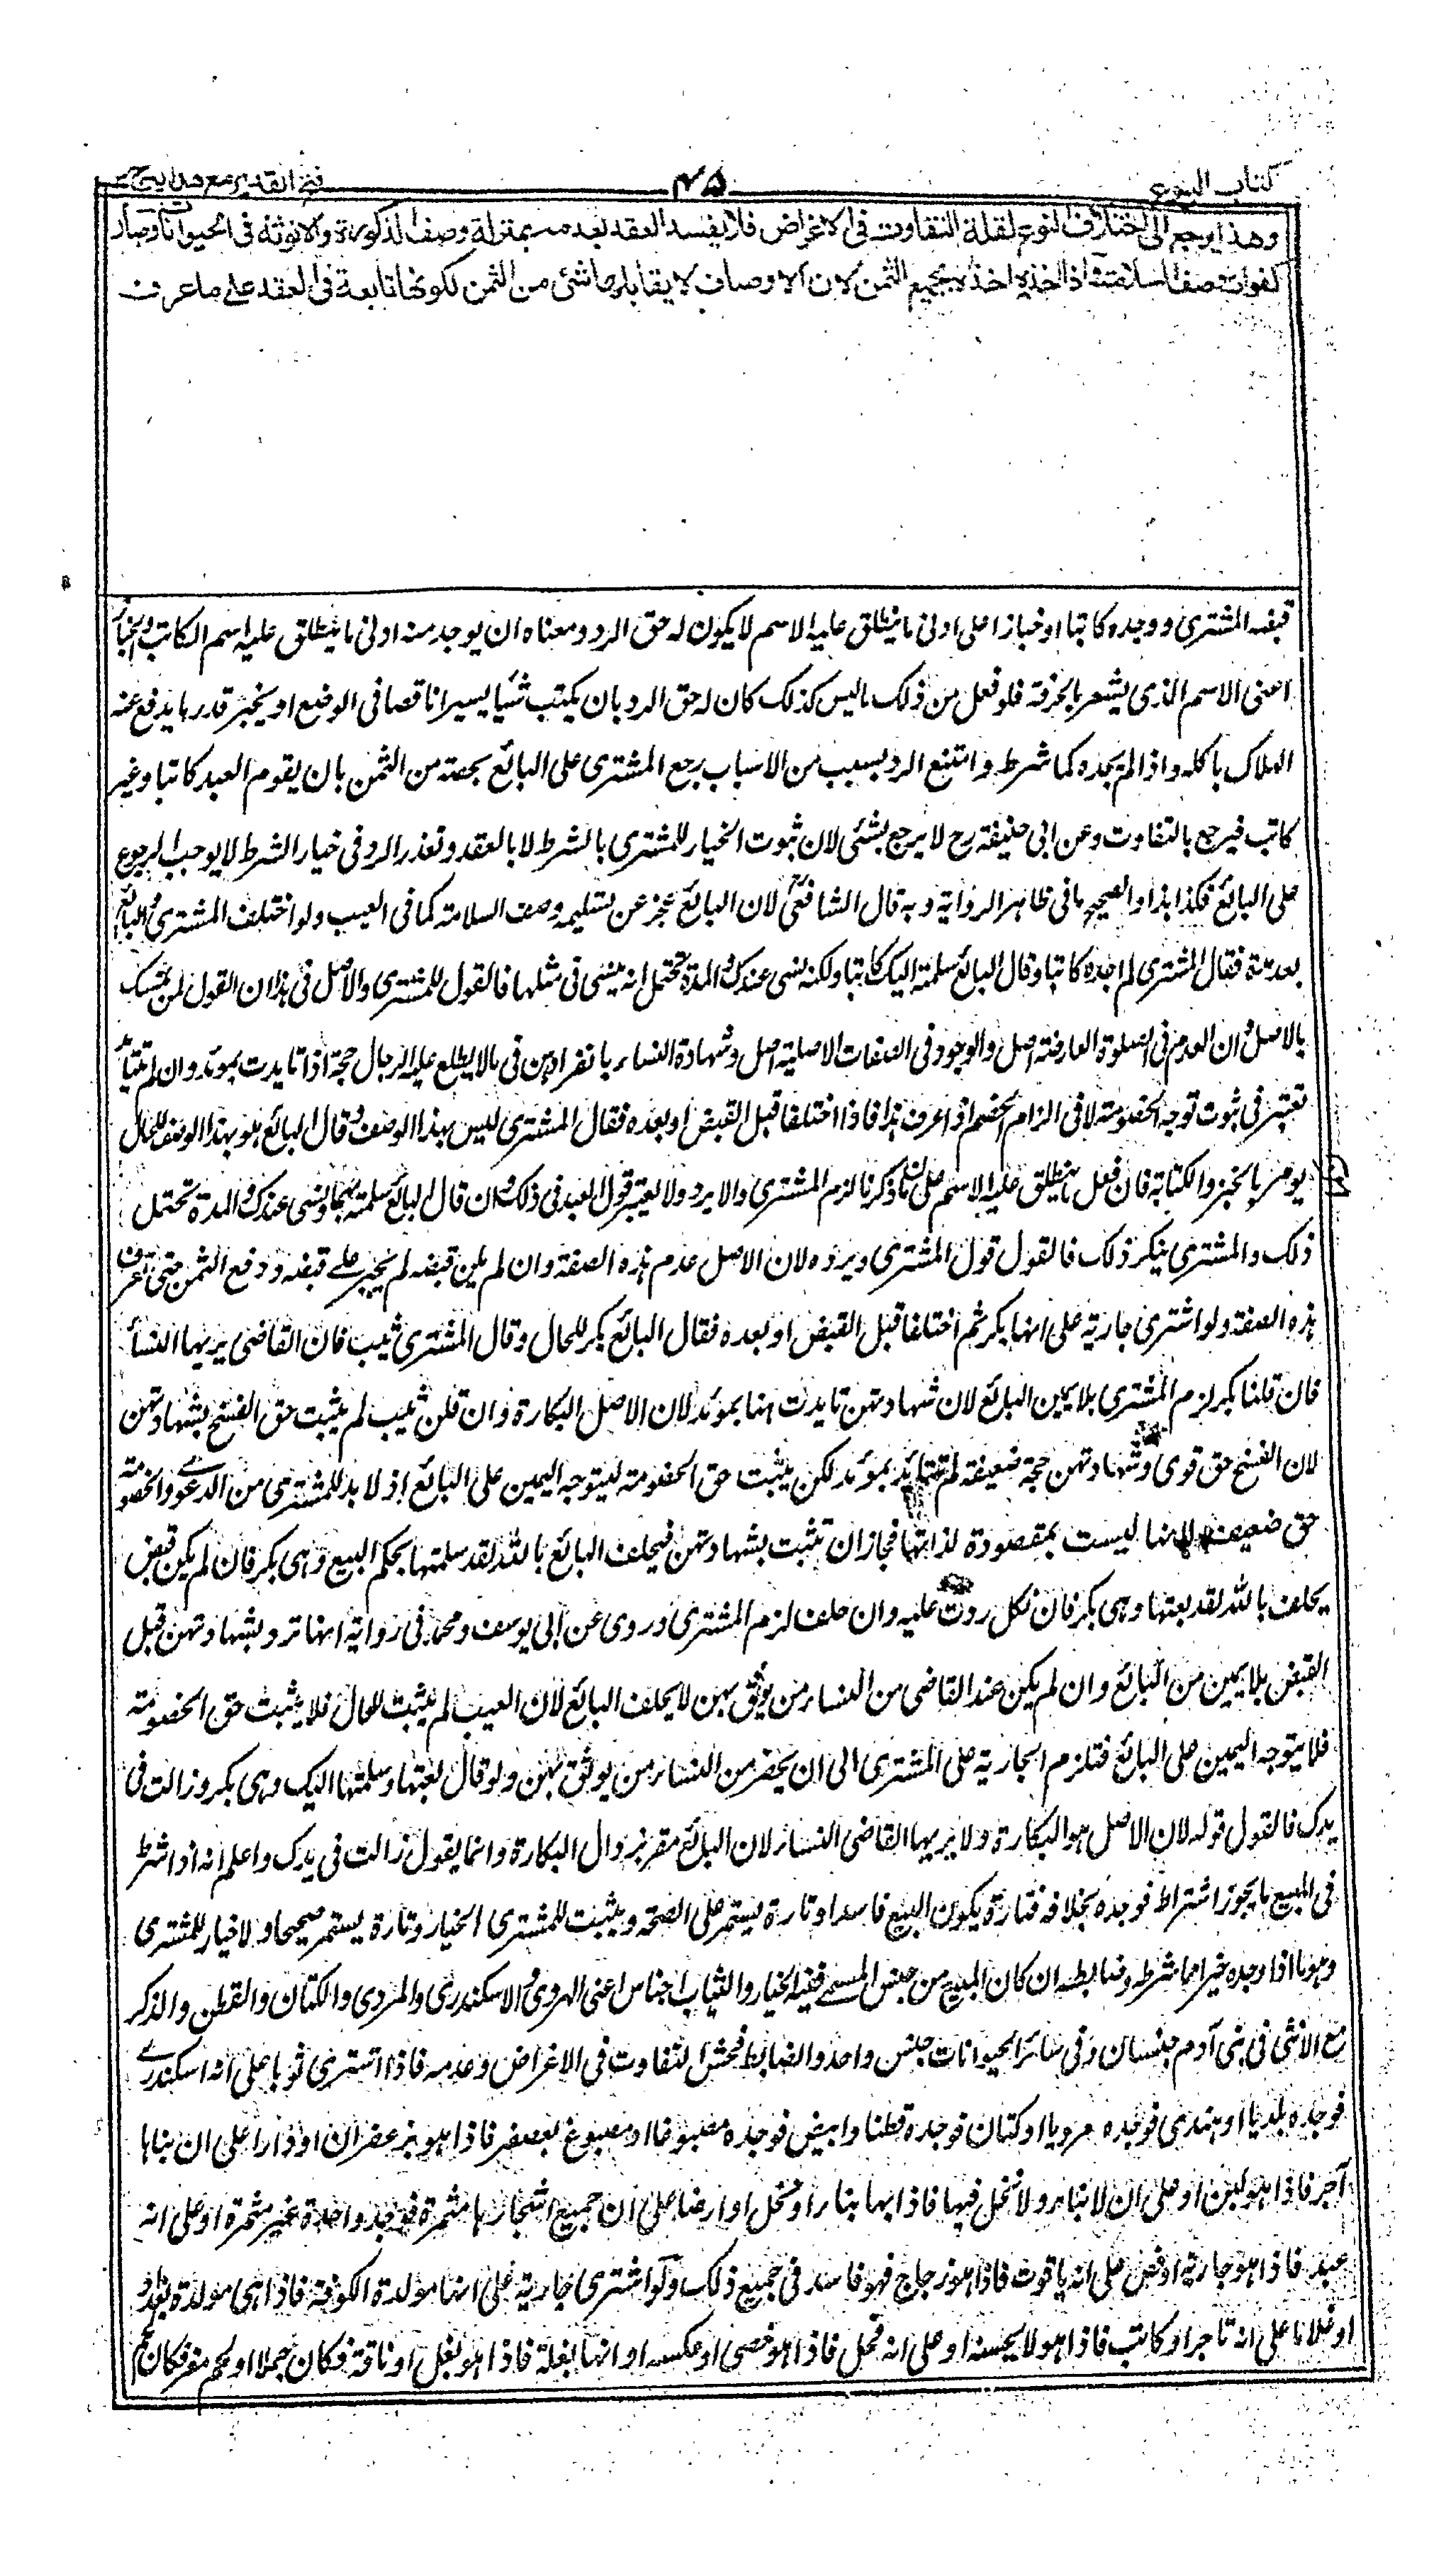 كتاب البيوع
٤٥
فتح القدير مع هدايه ج
وهذا يرجع الى اختلاف النوع لقلة التفاوت في الاغراض فلا يفسد العقد بعدمه بمنزلة وصف الذكورة والانوثة في الحيوانات وصار
كفوات وصف السلامة واذا اخذه اخذه بجميع الثمن لان الاوصاف لا يقابلها شئ من الثمن لكونها تابعة في العقد على ما عرف
قبضه المشترى ووجده كاتبا او خبازا على ادنى ما ينطلق عليه الاسم لا يكون له حق الرد ومعناه ان يوجد منه ادنى ما ينطلق عليه اسم الكاتب والخباز
اعنى الاسم الذى يشعر بالحرفة فلو فعل من ذلك ما ليس كذلك كان له حق الرد بان يكتب شيئا يسيرا ناقصا فى الوضع او يخبز قدر ما يدفع عنه
الهلاك باكله واذا لم يجده كما شرط وامتنع الرد بسبب من الاسباب رجع المشترى على البائع بحصته من الثمن بان يقوم العبد كاتبا وغير
كاتب فيرجع بالتفاوت وعن ابى حنيفة رح لا يرجع بشئى لان ثبوت الخيار للمشترى بالشرط لا بالعقد وتعذر الرد فى خيار الشرط لا يوجب الرجوع
على البائع فكذا هذا والصحيح ما فى ظاهر الرواية وبه قال الشافعى لان البائع عجز عن تسليمه وصف السلامة كما فى العيب ولو اختلف المشترى والبائع
بعد مدة فقال المشترى لم اجده كاتبا وقال البائع سلمته اليك كاتبا ولكنه نسى عندك والمدة تحتمل انه ينسى فى مثلها فالقول للمشترى والاصل فى هذا ان القول لمن تمسك
بالاصل وان العدم فى الصفات العارضة اصل والوجود فى الصفات الاصلية اصل وشهادة النساء بانفرادهن فى ما لا يطلع عليه الرجال حجة اذا تايدت بمؤيد وان لم تتايد
تعتبر فى ثبوت توجه الخصومة لا فى الزام الخصم اذا عرف هذا فاذا اختلفا قبل القبض او بعده فقال المشترى ليس بهذا الوصف وقال البائع هو بهذا الوصف للحال
يومر بالخبز والكتابة فان فعل ما ينطلق عليه الاسم على ما ذكرنا لزم المشترى والا يرد ولا يعتبر قول العبد فى ذلك وان قال البائع سلمته بهما ونسى عندك والمدة تحتمل
ذلك والمشترى ينكر ذلك فالقول قول المشترى ويرده لان الاصل عدم هذه الصفة وان لم يكن قبضه لم يجبر على قبضه ودفع الثمن حتى تعرف
هذه الصفة ولو اشترى جارية على انها بكر ثم اختلفا قبل القبض او بعده فقال البائع بكر للحال وقال المشترى ثيب فان القاضى يريها النساء
فان قلنا بكر لزم المشترى بلا يمين البائع لان شهادتهن تايدت هنا بموئد لان الاصل البكارة وان قلن ثيب لم يثبت حق الفسخ بشهادتهن
لان الفسخ حق قوى وشهادتهن حجة ضعيفة لم تتايد بموئد لكن يثبت حق الخصومة ليتوجه اليمين على البائع اذ لا بد للمشترى من الدعوى والخصومة
حق ضعيف لانها ليست بمقصودة لذاتها فجاز ان تثبت بشهادتهن فيحلف البائع بالله لقد سلمتها بحكم البيع وهى بكر فان لم يكن قبض
يحلف بالله لقد بعتها وهى بكر فان نكل ردت عليه وان حلف لزم المشترى وروى عن ابى يوسف ومحمد فى رواية انها ترد بشهادتهن قبل
القبض بلا يمين من البائع وان لم يكن عند القاضى من النساء من يوثق بهن لا يحلف البائع لان العيب لم يثبت للحال فلا يثبت حق الخصومة
فلا يتوجه اليمين على البائع فتلزم الجارية على المشترى الى ان يحضر من النساء من يوثق بهن ولو قال بعتها وسلمتها اليك وهى بكر وزالت فى
يدك فالقول قوله لان الاصل هو البكارة ولا يريها القاضى النساء لان البائع مقر بزوال البكارة وانما يقول زالت فى يدك واعلم انه اذا شرط
فى المبيع ما يجوز اشتراطه فوجده بخلافه فتارة يكون البيع فاسدا وتارة يستمر على الصحة ويثبت للمشترى الخيار وتارة يستمر صحيحا ولا خيار للمشترى
وهو ما اذا وجده خيرا مما شرطه وضابطه ان كان المبيع من جنس المسمى ففيه الخيار والثياب اجناس اعنى الهروى والاسكندرى والمروى والكتان والقطن والذكر
مع الانثى فى بنى آدم جنسان وفى سائر الحيوانات جنس واحد والضابط فحش التفاوت فى الاغراض وعدمه فاذا اشترى ثوبا على انه اسكندرى
فوجده بلديا او هندى فوجده مرويا او كتان فوجده قطنا وابيض فوجده مصبوغا او مصبوغ بعصفر فاذا هو بزعفران او دارا على ان بناها
آجر فاذا هو لبن او على ان لا بناء ولا نخل فيها فاذا بها بناء او نخل او ارضا على ان جميع اشجارها مثمرة فوجد واحدة غير مثمرة او على انه
عبد فاذا هو جارية او فص على انه ياقوت فاذا هو زجاج فهو فاسد فى جميع ذلك ولو اشترى جارية على انها مولدة الكوفة فاذا هى مولدة بغداد
او غلاما على انه تاجر او كاتب فاذا هو لا يحسنه او على انه فحل فاذا هو خصى او عكسه او انها بغلة فاذا هو بغل او ناقة فكان جملا او لحم معز فكان لحم